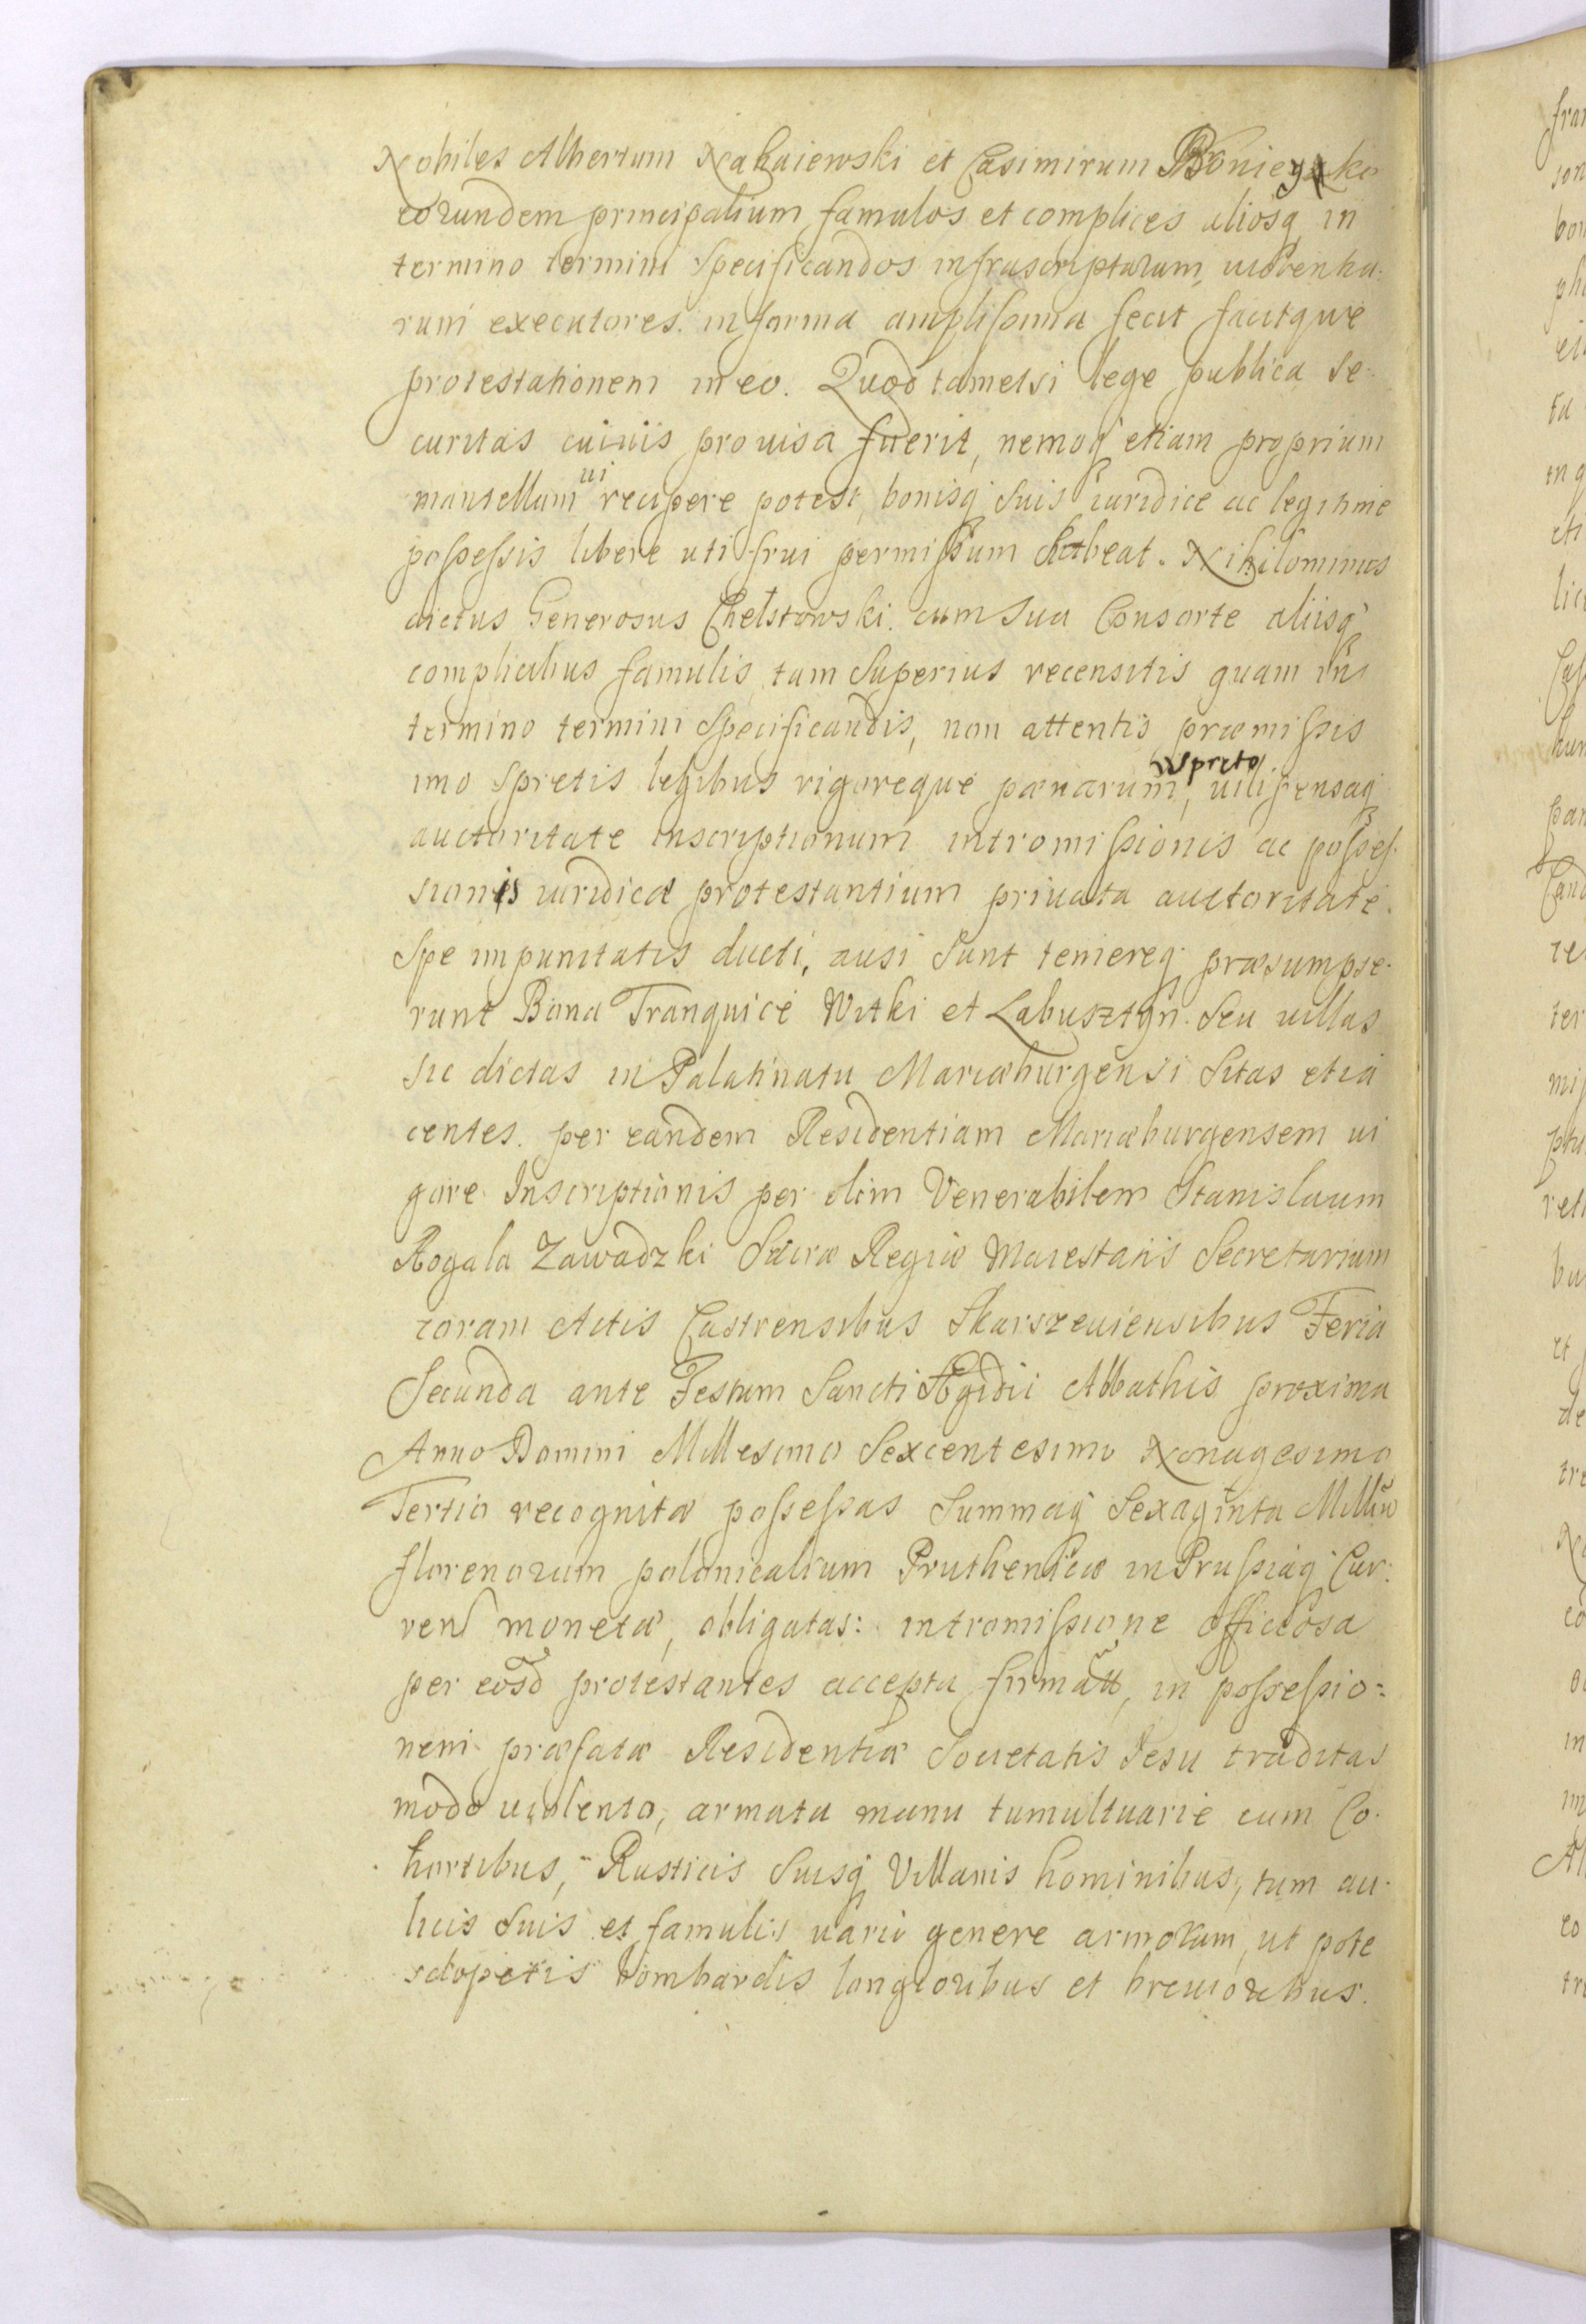 Nobiles Albertum Nakaiewski et Casimirum
eorundem principalium famulos et complices aliosq in
termino termini specificandos infrascriptarum, violentia-
rum executores. in forma amplissima fecit facitque
protestationem in eo. Quod tametsi lege publica se-
curitas cuiuis prouisa fuerit, nemoq etiam proprium
mantellum ui recipere potest, bonisq suis iuridice ac legitime
possessis libere uti frui permissum habeat. Nihilominus
dictus Generosus Chełstowski cum sua Consorte aliisq
complicibus famulis tam superius recensitis quam in
termino termini specificandis, non attentis præmissis
imo spretis legibus rigoreque pænarum spreto, uilipensaq
auctoritate inscriptionum intromissionis ac posses-
sionis iuridicæ protestantium priuata auctoritate.
Spe impunitatis ducti, ausi sunt temereq præsumpse-
runt Bona Tranquice Witki et Labusztyn seu uillas
sic dictas in Palatinatu Mariæburgensi sitas et ia
centes. per eandem Residentiam Mariæburgensem ui
gore Inscriptionis per olim Venerabilem Stanislaum
Rogala Zawadzki Sacræ Regiæ Maiestatis Secretarium
coram Actis Castrensibus Skarszeuiensibus Feria
Secunda ante Festum Sancti Ægidii Abbathis proxima
Anno Domini Millesimo Sexcentesimo Nonagesimo
Tertio recognitæ possessas Summaq Sexaginta Milliu
florenorum polonicalium Pruthenicæ in Prussiaq Cur-
ren monetæ, obligatas: intromissione officiosa
per eosd protestantes accepta firmatt, in possessio=
nem præfatæ Residentiæ Societatis Jesu traditas
modo uiolento, armata manu tumultuarie cum Co-
hortibus, Rusticis Suisq Villanis hominibus, tum au-
licis suis et famulis uario genere armorum, ut pote
sclopetis bombardis longioribus et breuioribus.